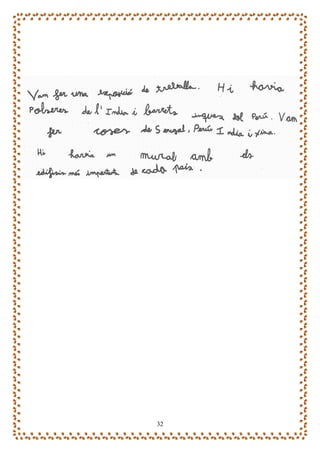 Vam fer una exposició de tretralla. Hi havia
Polseres de l'India i barrets inques del Perú. Vam
fer coses de Senegal, Perú India i xina.
Hi havia un mural amb els
edificis més importants de cada país.
32